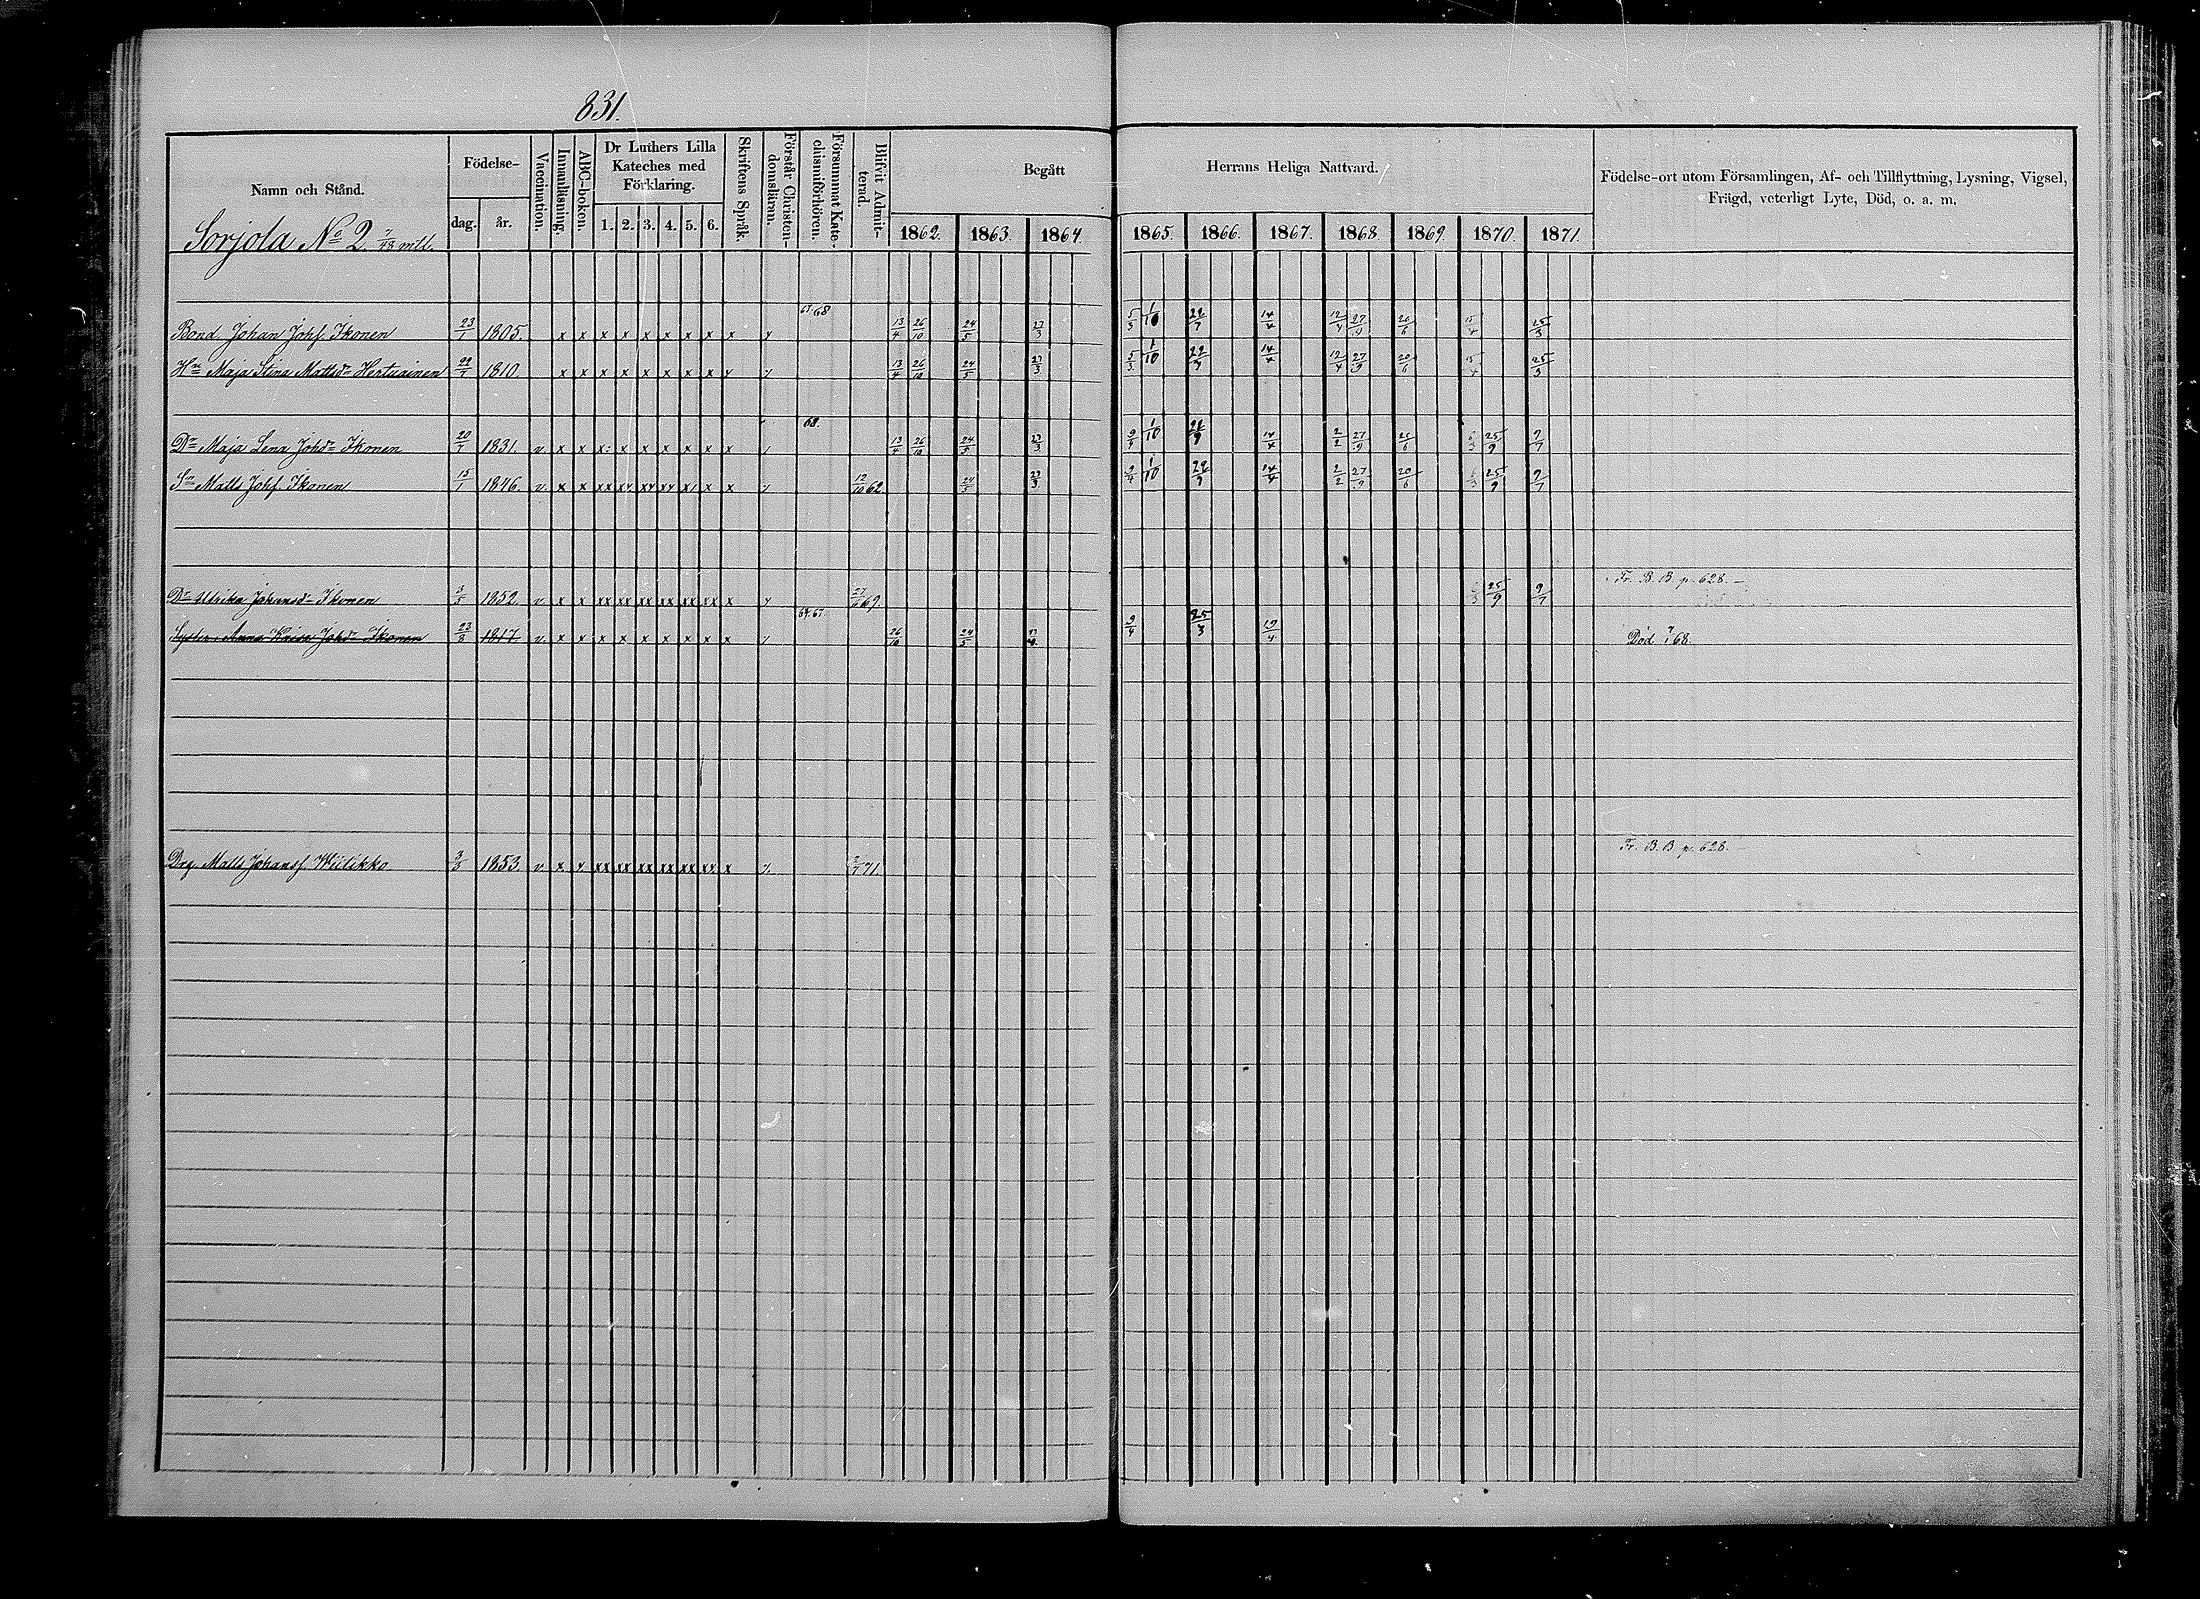 831.
Namn och Stånd. Födelse- dag. år. Vaccination. Innanläsning. ABC-boken. Dr Luthers Lilla Kateches med Förklaring. 1. 2. 3. 4. 5. 6. Skriftens Språk. Förstår Christendomsläran. Försummat Katechismiförhören. Blifvit Admitterad. Begått Herrans Heliga Nattvard. 1862. 1863. 1864. 1865. 1866. 1867. 1868. 1869. 1870. 1871. Födelse-ort utom Församlingen, Af- och Tillflyttning, Lysning, Vigsel, Frägd, veterligt Lyte, Död, o. a. m.
Sorjola No 2. mtl.
67 68
Bond. Johan Johs. Ikonen 23/1 1805. x x x x x x x x x 13/4 26/10 24/5 27/3 5/3 1/10 22/7 14/4 12/4 27/9 20/6 15/4 25/3
Hu Maja Stina Mattsdr Hertuainen 22/7 1810 x x x x x x x x x 13/4 26/10 24/5 27/3 5/3 1/10 22/7 14/4 12/4 27/9 20/6 15/4 25/3
68.
Dr Maja Lena Johdr Ikonen 20/7 1831. v x x x x x x x x x 13/4 26/10 24/5 27/3 9/4 1/10 14/4 2/2 27/9 20/6 25/9 9/7
Sn Matts Johs. Ikonen 15/1 1846. v x x xx xx xx xx x x x 12/10 62. 24/5 27/3 9/4 1/10 14/4 2/2 27/9 20/6 25/9 9/7
Dr Ulrika Johansdr Ikonen 1852. v x x xx xx xx xx xx xx x 69. 25/9 9/7 Fr. B. B. p. 628.
67.
Syster Anna Kaisa Johdr Ikonen 23/8 1817 v x x x x x x x x x 26/10 24/5 9/4 25/3 19/4 Död 68.
Drg. Matts Johanss. Wilikko 3/3 1853. v x x xx xx xx xx xx xx x 71. Fr. B. B. p. 628.